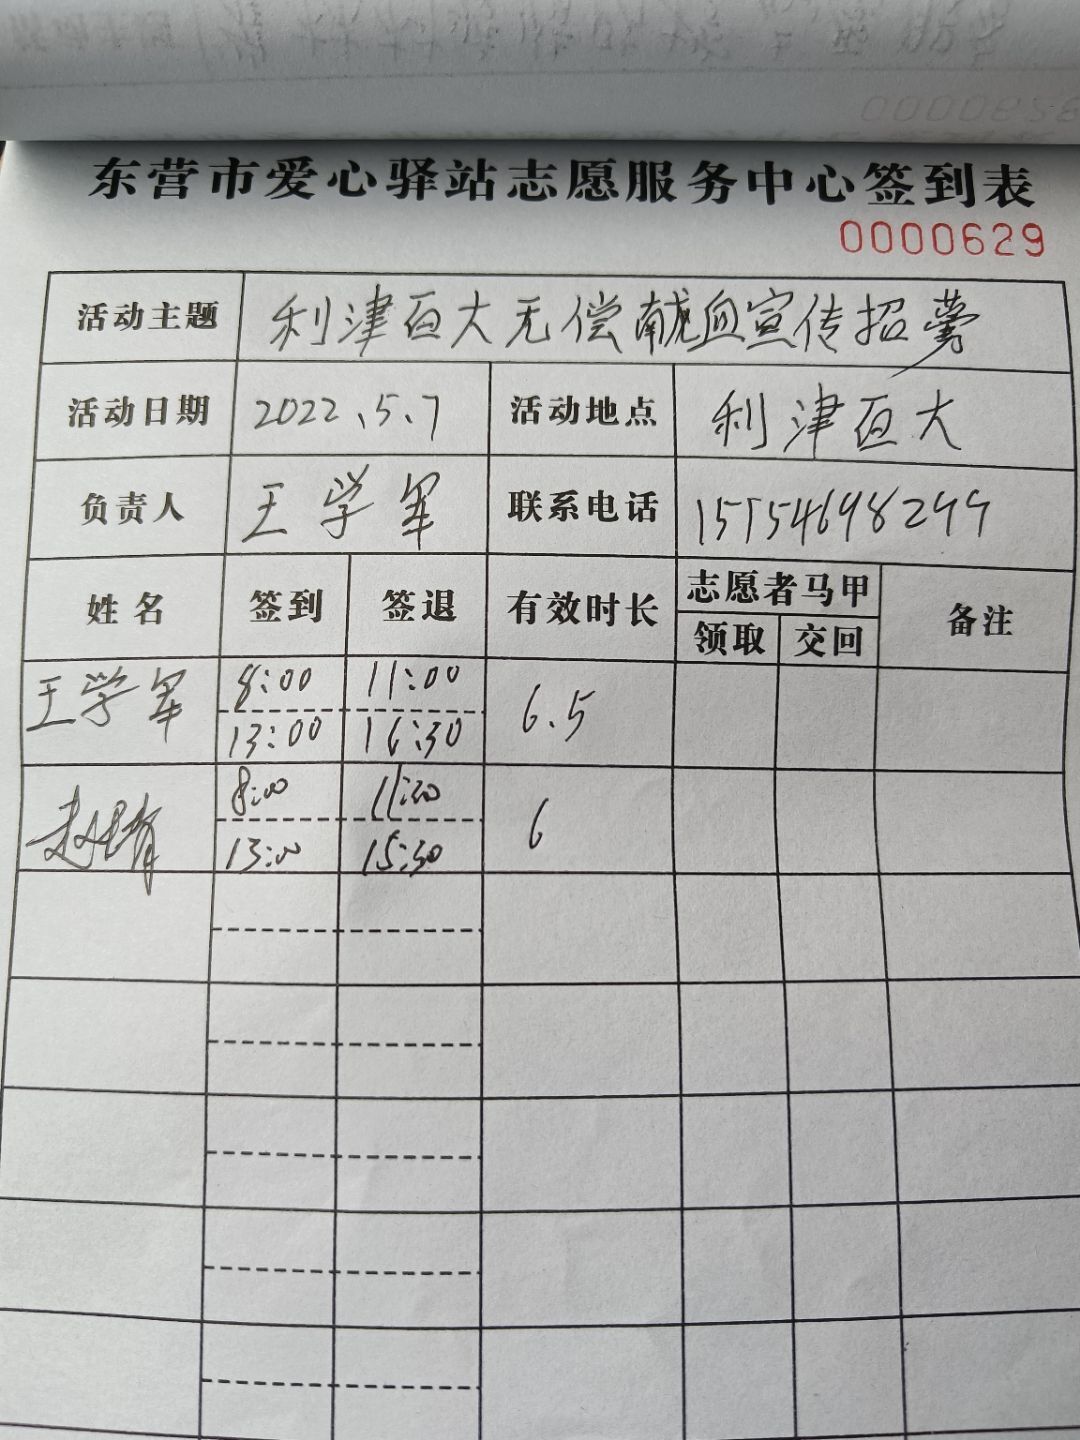 东营市爱心驿站志愿服务中心签到表
0000629
活动主题 利津百大无偿献血宣传招募
活动日期 2022.5.7 活动地点 利津百大
负责人 王学军 联系电话 15154698299
姓名 签到 签退 有效时长 志愿者马甲 备注
领取 交回
王学军 8:00 11:00 6.5
13:00 16:30
8:00 11:30 6
13:00 15:30